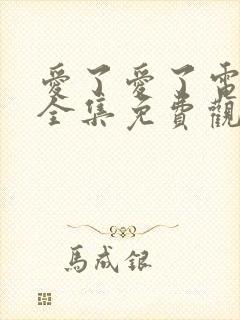 愛了愛了電
全集免費觀
馬成銀